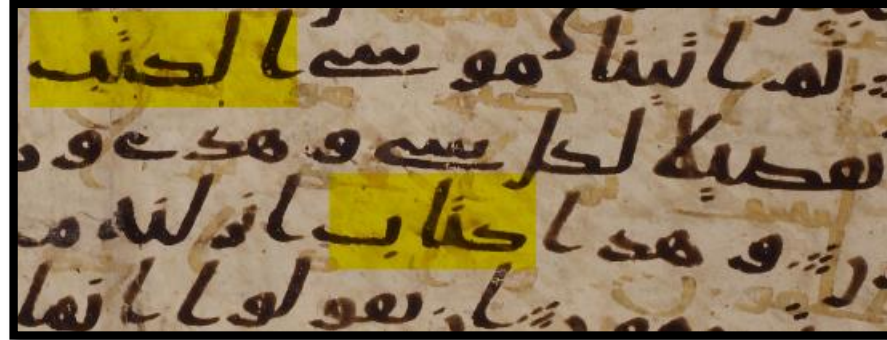 ثم اتينا موسى الكتب
تفصيلا لكل شى وهدى و
وهذا كتاب انزلنه
ان تقولوا انما